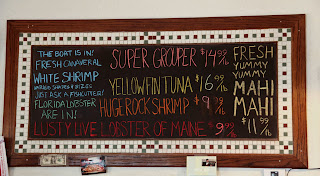 THE BOAT IS IN!
FRESH CANAVERAL
WHITE SHRIMP
VARIOUS SHAPES & SIZES
JUST ASK A FISHCUTTER!
FLORIDA LOBSTER
ARE IN!
SUPER GROUPER $14 99/lb
YELLOWFIN TUNA $16 99/lb
HUGE ROCK SHRIMP $9 /lb
LUSTY LIVE LOBSTER OF MAINE $9 99/lb
FRESH
YUMMY
YUMMY
MAHI
MAHI
$11 99/lb